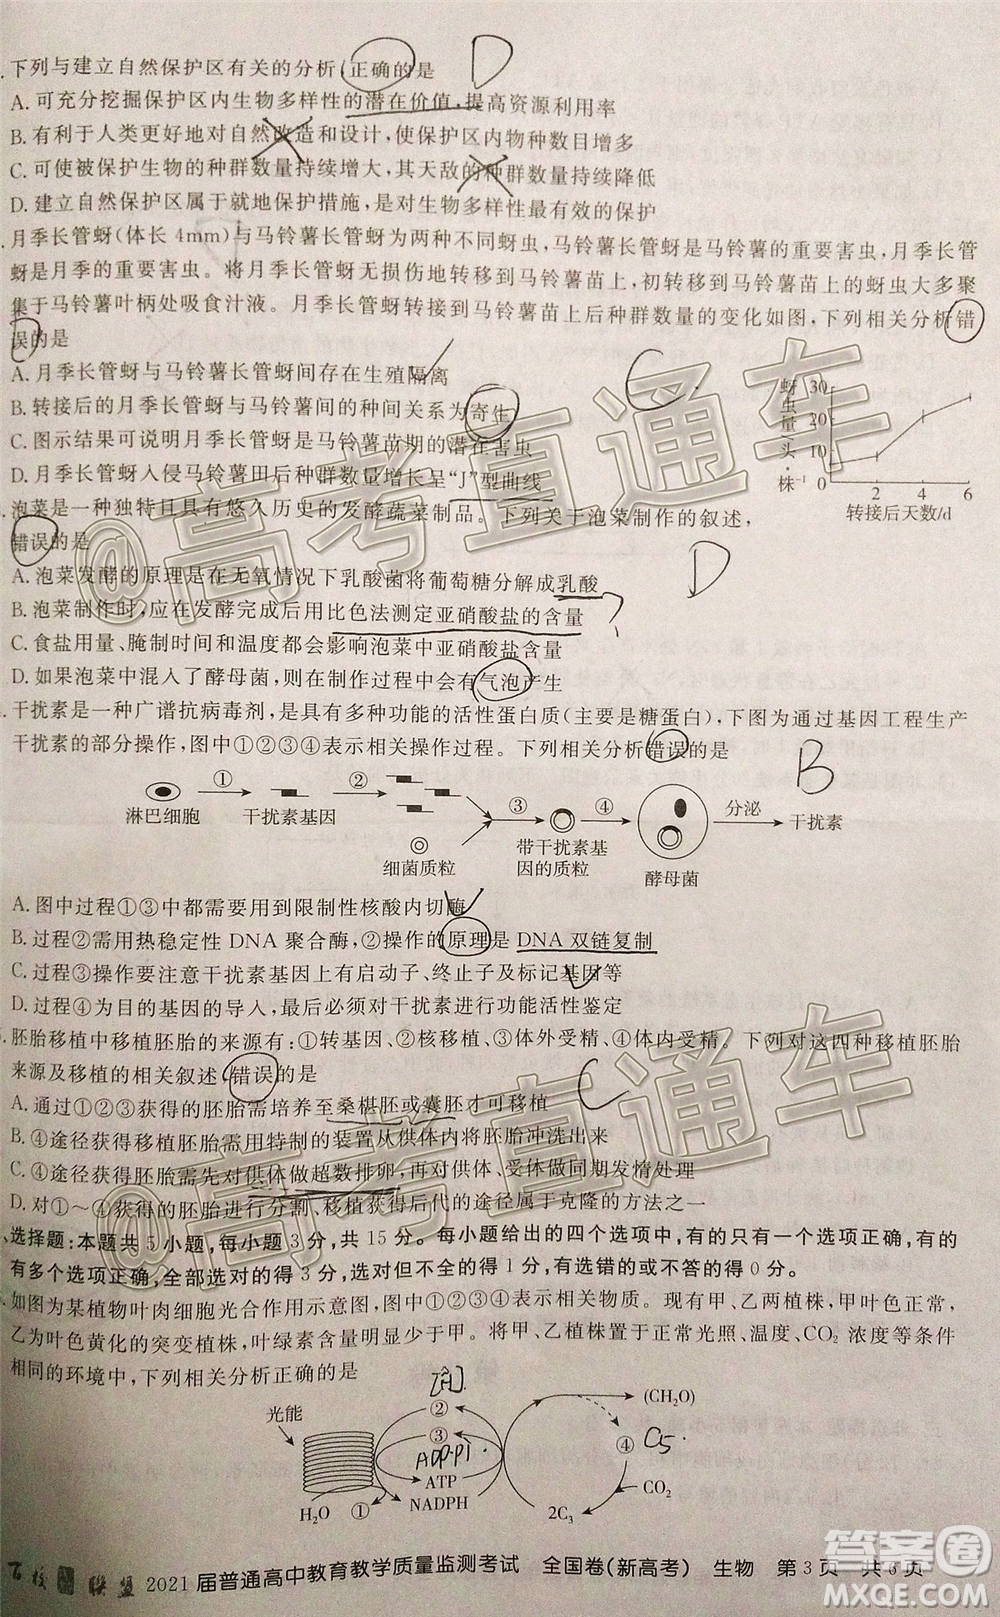 下列与建立自然保护区有关的分析,正确的是 D
A.可充分挖掘保护区内生物多样性的潜在价值,提高资源利用率
B.有利于人类更好地对自然改造和设计,使保护区内物种数目增多
C.可使被保护生物的种群数量持续增大,其天敌的种群数量持续降低
D.建立自然保护区属于就地保护措施,是对生物多样性最有效的保护
月季长管蚜(体长4mm)与马铃薯长管蚜为两种不同蚜虫,马铃薯长管蚜是马铃薯的重要害虫,月季长管
蚜是月季的重要害虫。将月季长管蚜无损伤地转移到马铃薯苗上,初转移到马铃薯苗上的蚜虫大多聚
集于马铃薯叶柄处吸食汁液。月季长管蚜转接到马铃薯苗上后种群数量的变化如图,下列相关分析错
误的是
A.月季长管蚜与马铃薯长管蚜间存在生殖隔离
B.转接后的月季长管蚜与马铃薯间的种间关系为寄生
C.图示结果可说明月季长管蚜为马铃薯苗期的潜在害虫
D.月季长管蚜入侵马铃薯田后种群数量增长呈“J”型曲线
蚜虫量/头·株⁻¹
30
20
10
0
2 4 6
转接后天数/d
泡菜是一种独特且具有悠久历史的发酵蔬菜制品。下列关于泡菜制作的叙述,
错误的是 D
A.泡菜发酵的原理是在无氧情况下乳酸菌将葡萄糖分解成乳酸
B.泡菜制作时,应在发酵完成后用比色法测定亚硝酸盐的含量 ?
C.食盐用量、腌制时间和温度都会影响泡菜中亚硝酸盐含量
D.如果泡菜中混入了酵母菌,则在制作过程中会有气泡产生
干扰素是一种广谱抗病毒剂,是具有多种功能的活性蛋白质(主要是糖蛋白),下图为通过基因工程生产
干扰素的部分操作,图中①②③④表示相关操作过程。下列相关分析错误的是 B
淋巴细胞 ① 干扰素基因 ② 细菌质粒 ③ 带干扰素基
因的质粒 ④ 酵母菌 分泌 干扰素
A.图中过程①③中都需要用到限制性核酸内切酶
B.过程②需用热稳定性DNA聚合酶,②操作的原理是DNA双链复制
C.过程③操作要注意干扰素基因上有启动子、终止子及标记基因等
D.过程④为目的基因的导入,最后必须对干扰素进行功能活性鉴定
胚胎移植中移植胚胎的来源有:①转基因、②核移植、③体外受精、④体内受精。下列对这四种移植胚胎
来源及移植的相关叙述错误的是 C
A.①②③途径获得的胚胎需培养至桑椹胚或囊胚才可移植
B.④途径获得移植胚胎需用特制的装置从供体内把胚胎冲洗出来
C.④途径获得胚胎需先对供体做超数排卵,再对供体、受体做同期发情处理
D.对①～④获得的胚胎进行分割、移植获得后代的途径属于克隆的方法之一
选择题:本题共5小题,每小题3分,共15分。每小题给出的四个选项中,有的只有一个选项正确,
有多个选项正确,全部选对的得3分,选对但不全的得1分,有选错的或不答的得0分。
如图为某植物叶肉细胞光合作用示意图,图中①②③④表示相关物质。现有甲、乙两植株,甲叶色正常,
乙为叶色黄化的突变植株,叶绿素含量明显少于甲。将甲、乙植株置于正常光照、温度、CO₂浓度等条件
相同的环境中,下列相关分析正确的是
[H]
光能 ② (CH₂O)
③ ④ C5
ADP.Pi
ATP CO₂
H₂O ① NADPH 2C₃
百校联盟 2021届普通高中教育教学质量监测考试 全国卷(新高考) 生物 第3页 共6页
@高考直通车
@高考直通车
答案圈
MXQE.COM